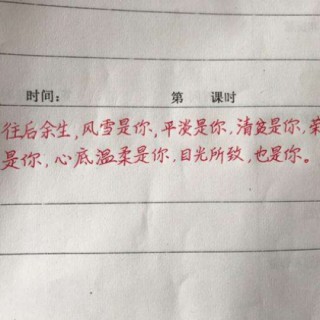 时间： 第 课时
往后余生,风雪是你,平淡是你,清贫是你,荣
是你,心底温柔是你,目光所致,也是你。